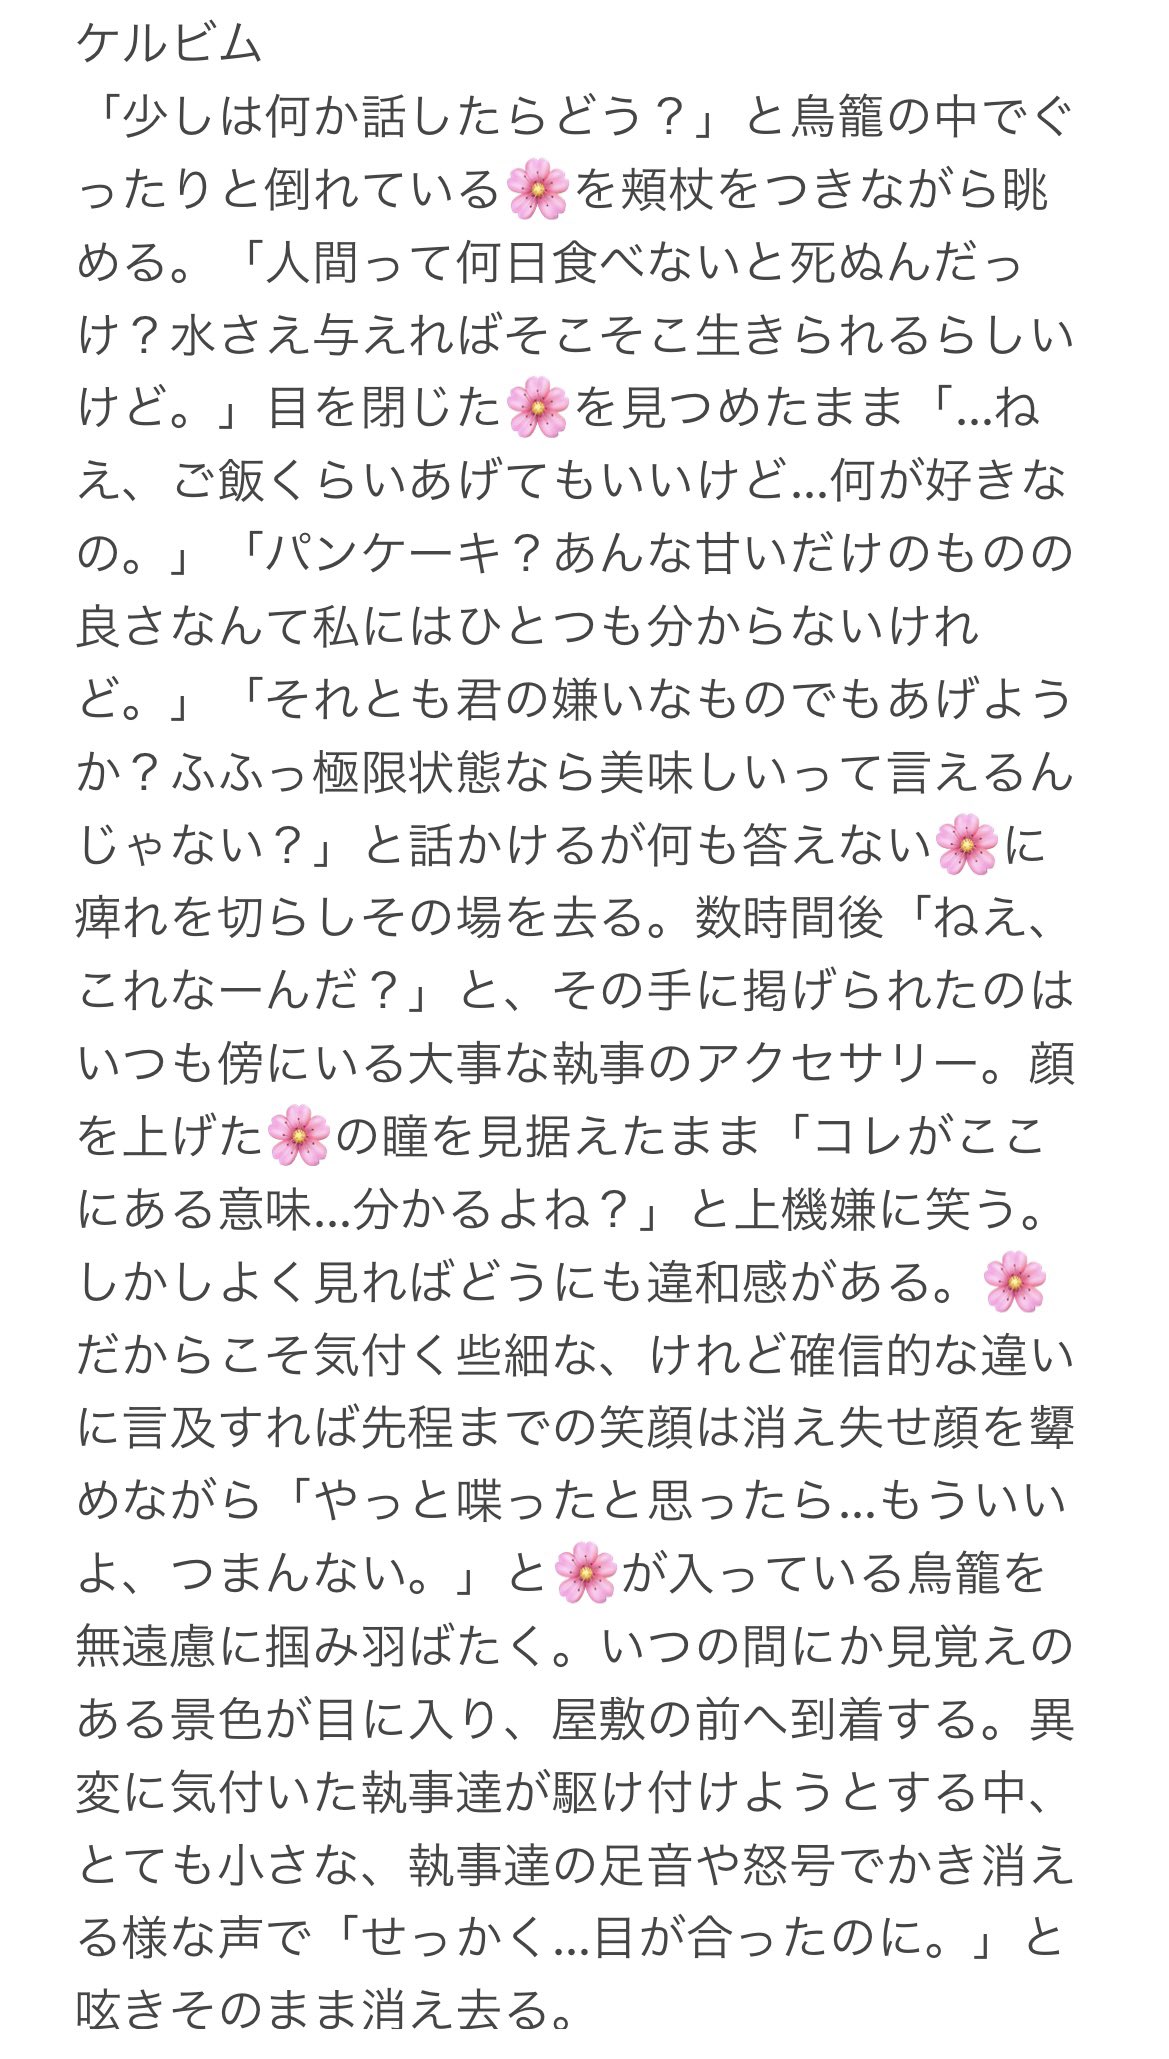 ケルビム
「少しは何か話したらどう？」と鳥籠の中でぐ
ったりと倒れている🌸を頬杖をつきながら眺
める。「人間って何日食べないと死ぬんだっ
け？水さえ与えればそこそこ生きられるらしい
けど。」目を閉じた🌸を見つめたまま「…ね
え、ご飯くらいあげてもいいけど…何が好きな
の。」「パンケーキ？あんな甘いだけのものの
良さなんて私にはひとつも分からないけれ
ど。」「それとも君の嫌いなものでもあげよう
か？ふふっ極限状態なら美味しいって言えるん
じゃない？」と話かけるが何も答えない🌸に
痺れを切らしその場を去る。数時間後「ねえ、
これなーんだ？」と、その手に掲げられたのは
いつも傍にいる大事な執事のアクセサリー。顔
を上げた🌸の瞳を見据えたまま「コレがここ
にある意味…分かるよね？」と上機嫌に笑う。
しかしよく見ればどうにも違和感がある。🌸
だからこそ気付く些細な、けれど確信的な違い
に言及すれば先程までの笑顔は消え失せ顔を顰
めながら「やっと喋ったと思ったら…もういい
よ、つまんない。」と🌸が入っている鳥籠を
無遠慮に掴み羽ばたく。いつの間にか見覚えの
ある景色が目に入り、屋敷の前へ到着する。異
変に気付いた執事達が駆け付けようとする中、
とても小さな、執事達の足音や怒号でかき消え
る様な声で「せっかく…目が合ったのに。」と
呟きそのまま消え去る。